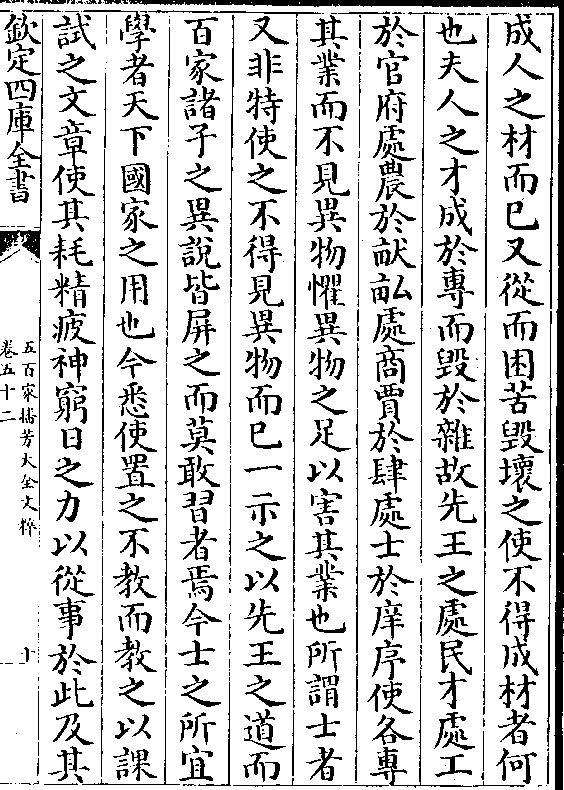 成人之材而已又從而困苦毀壞之使不得成材者何
也夫人之才成於專而毀於雜故先王之處民才處工
於官府處農於畎畝處商賈於肆處士於庠序使各專
其業而不見異物懼異物之足以害其業也所謂士者
又非特使之不得見異物而已一示之以先王之道而
百家諸子之異說皆屏之而莫敢習者焉今士之所宜
學者天下國家之用也今悉使置之不教而教之以課
試之文章使其耗精疲神窮日之力以從事於此及其
欽定四庫全書
五百家播芳大全文粹
卷五十二
十